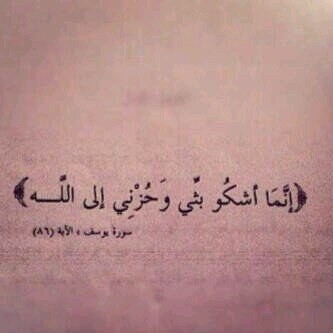 ﴿إِنَّمَا أشكُو بثِّي وَحُزْنِي إلى اللَّـــه﴾
سورة يوسف ، الآية (٨٦)